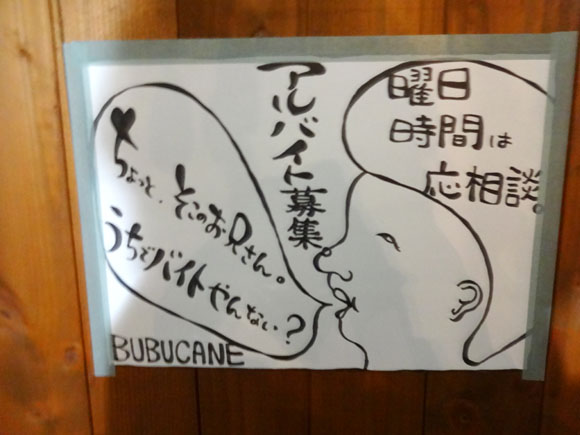 アルバイト募集
曜日
時間は
応相談。
ちょっと、そこのお兄さん。
うちでバイトやんない？
BUBUCANE